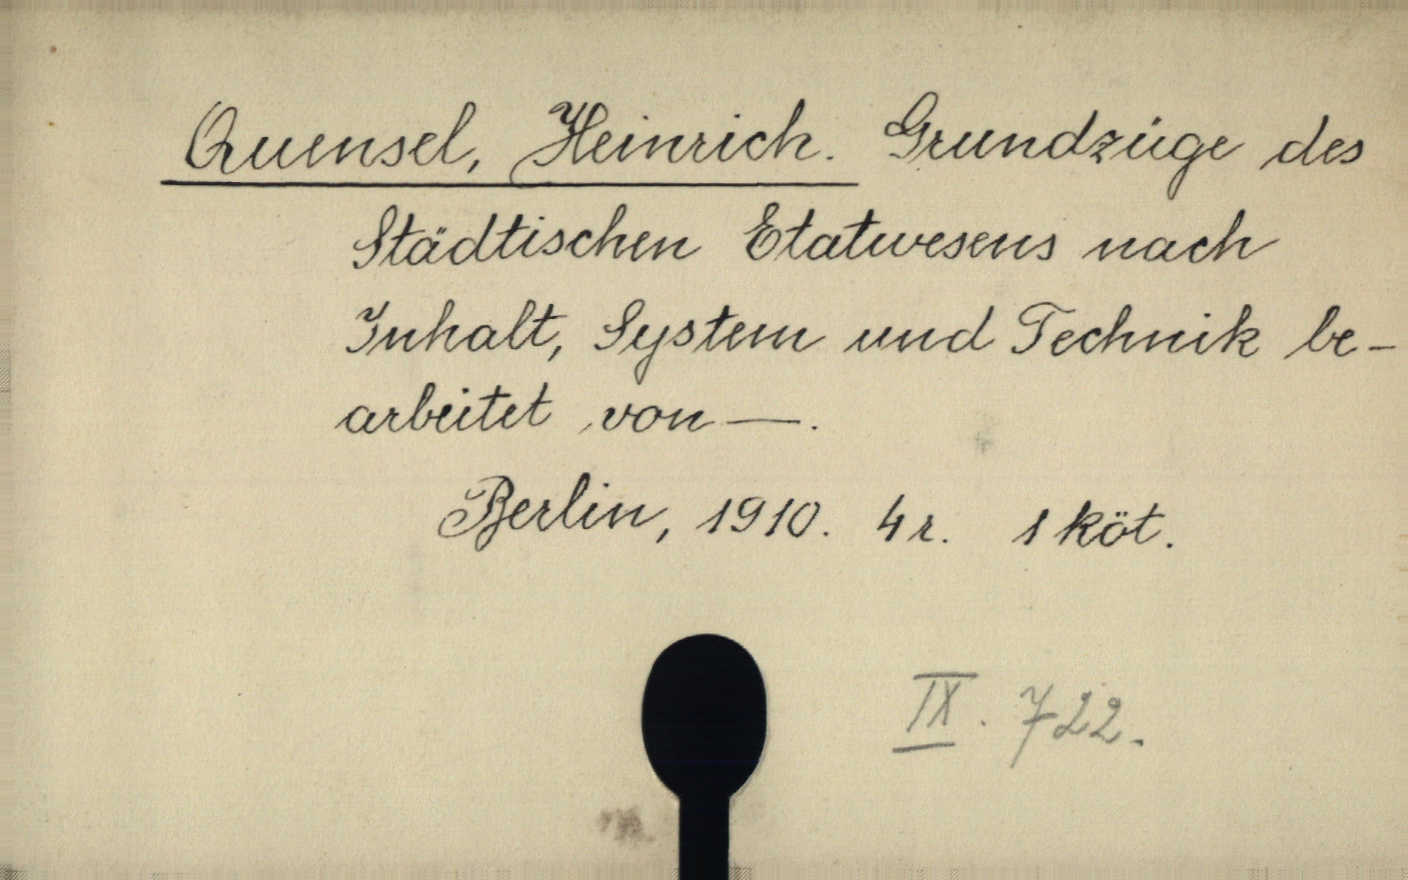 Quensel, Heinrich. Grundzüge des
Städtischen Etatwesens nach
Inhalt, System und Technik be-
arbeitet von —.
Berlin, 1910. 4 r. 1 köt.
IX. 722.